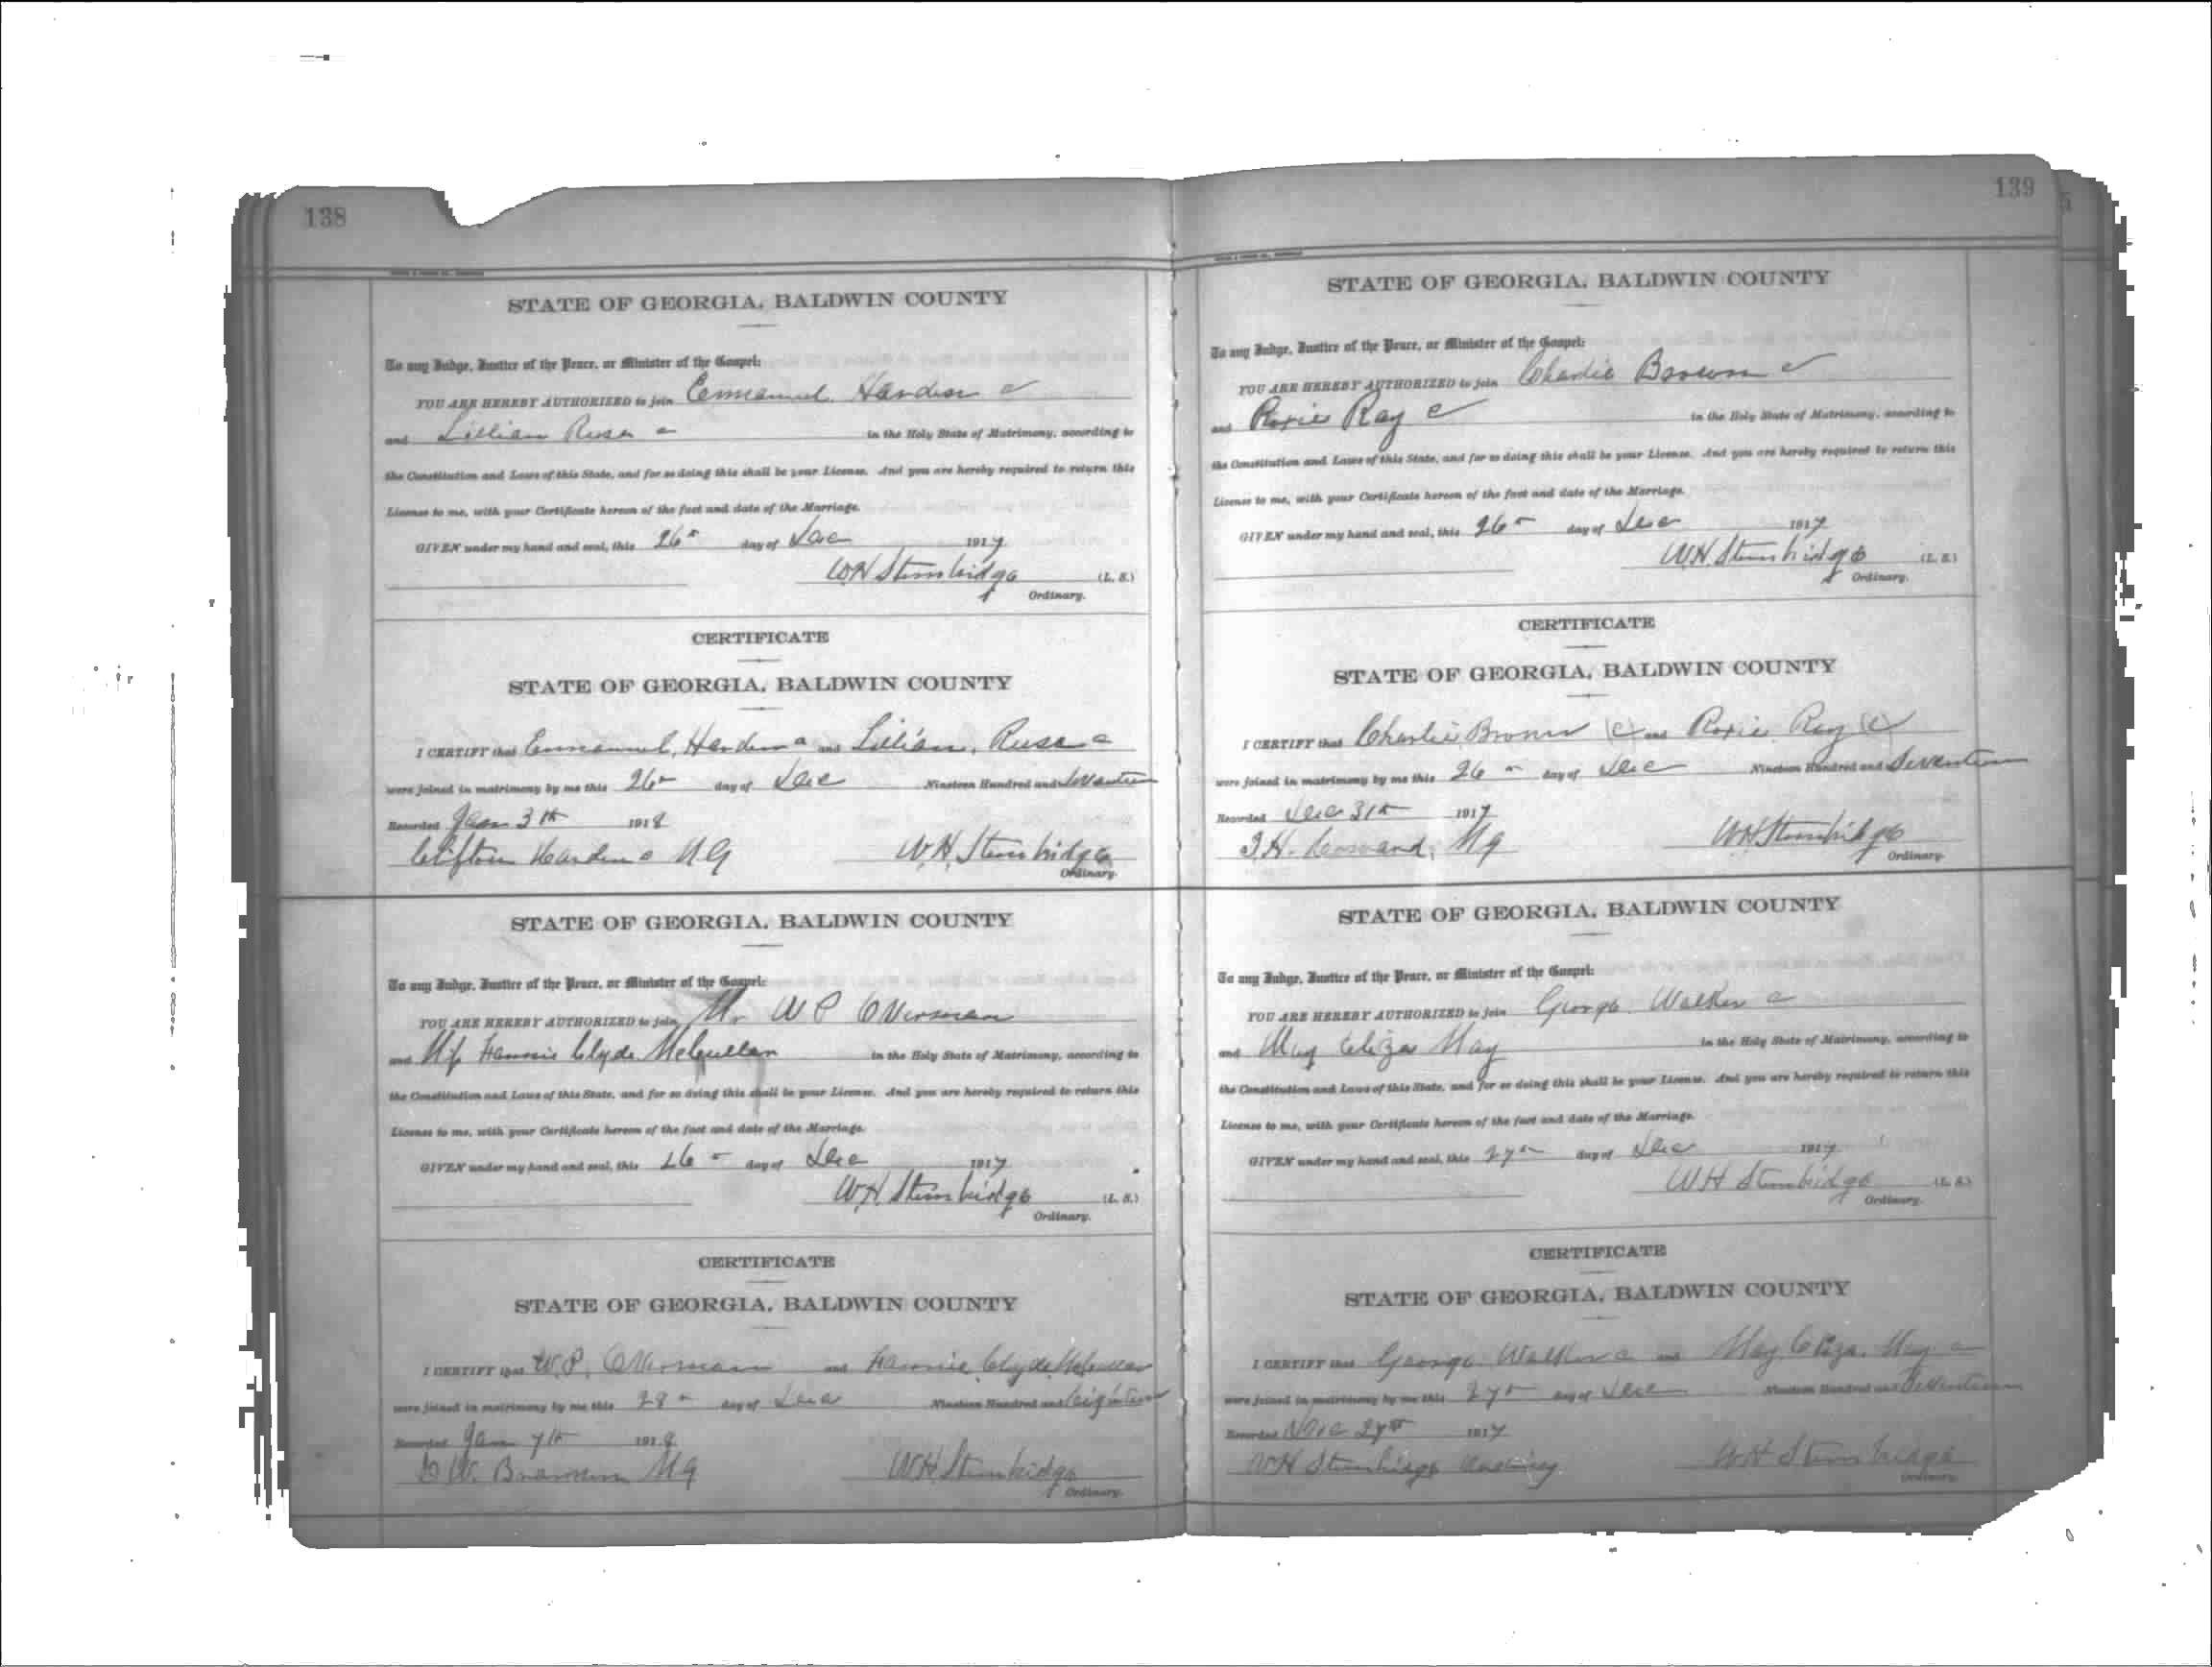 138
STATE OF GEORGIA, BALDWIN COUNTY
To any Judge, Justice of the Peace, or Minister of the Gospel:
YOU ARE HEREBY AUTHORIZED to join Emmanuel Hardin c
and Lillian Russ c in the Holy State of Matrimony, according to
the Constitution and Laws of this State, and for so doing this shall be your License. And you are hereby required to return this
License to me, with your Certificate hereon of the fact and date of the Marriage.
GIVEN under my hand and seal, this 26 day of Dec 1917
W H Stembridge (L. S.)
Ordinary.
CERTIFICATE
STATE OF GEORGIA, BALDWIN COUNTY
I CERTIFY that Emmanuel Hardin c and Lillian Russ c
were joined in matrimony by me this 26 day of Dec Nineteen Hundred and Seventeen
Recorded Jan 3th 1918
Clifton MG W. H. Stembridge
Ordinary.
STATE OF GEORGIA, BALDWIN COUNTY
To any Judge, Justice of the Peace, or Minister of the Gospel:
YOU ARE HEREBY AUTHORIZED to join Mr W P Overman
and Fannie Clyde in the Holy State of Matrimony, according to
the Constitution and Laws of this State, and for so doing this shall be your License. And you are hereby required to return this
License to me, with your Certificate hereon of the fact and date of the Marriage.
GIVEN under my hand and seal, this 26 day of Dec 1917
W. H. Stembridge (L. S.)
Ordinary.
CERTIFICATE
STATE OF GEORGIA, BALDWIN COUNTY
I CERTIFY that W. P. Overman and Fannie Clyde
were joined in matrimony by me this 28 day of Dec Nineteen Hundred and Eighteen
Recorded Jan 7th 1918
W. MG W H Stembridge
Ordinary.
139
STATE OF GEORGIA, BALDWIN COUNTY
To any Judge, Justice of the Peace, or Minister of the Gospel:
YOU ARE HEREBY AUTHORIZED to join Charlie Brown c
and Roxie Ray c in the Holy State of Matrimony, according to
the Constitution and Laws of this State, and for so doing this shall be your License. And you are hereby required to return this
License to me, with your Certificate hereon of the fact and date of the Marriage.
GIVEN under my hand and seal, this 26 day of Dec 1917
W. H. Stembridge (L. S.)
Ordinary.
CERTIFICATE
STATE OF GEORGIA, BALDWIN COUNTY
I CERTIFY that Charlie Brown (c) and Roxie Ray (c)
were joined in matrimony by me this 26 day of Dec Nineteen Hundred and Seventeen
Recorded Dec 31th 1917
MG W H Stembridge
Ordinary.
STATE OF GEORGIA, BALDWIN COUNTY
To any Judge, Justice of the Peace, or Minister of the Gospel:
YOU ARE HEREBY AUTHORIZED to join George Walker c
and May Eliza May in the Holy State of Matrimony, according to
the Constitution and Laws of this State, and for so doing this shall be your License. And you are hereby required to return this
License to me, with your Certificate hereon of the fact and date of the Marriage.
GIVEN under my hand and seal, this 27 day of Dec 1917
W H Stembridge (L. S.)
Ordinary.
CERTIFICATE
STATE OF GEORGIA, BALDWIN COUNTY
I CERTIFY that George Walker c and May Eliza May c
were joined in matrimony by me this 27 day of Dec Nineteen Hundred and Seventeen
Recorded Dec 27th 1917
W H Stembridge Ordinary W H Stembridge
Ordinary.